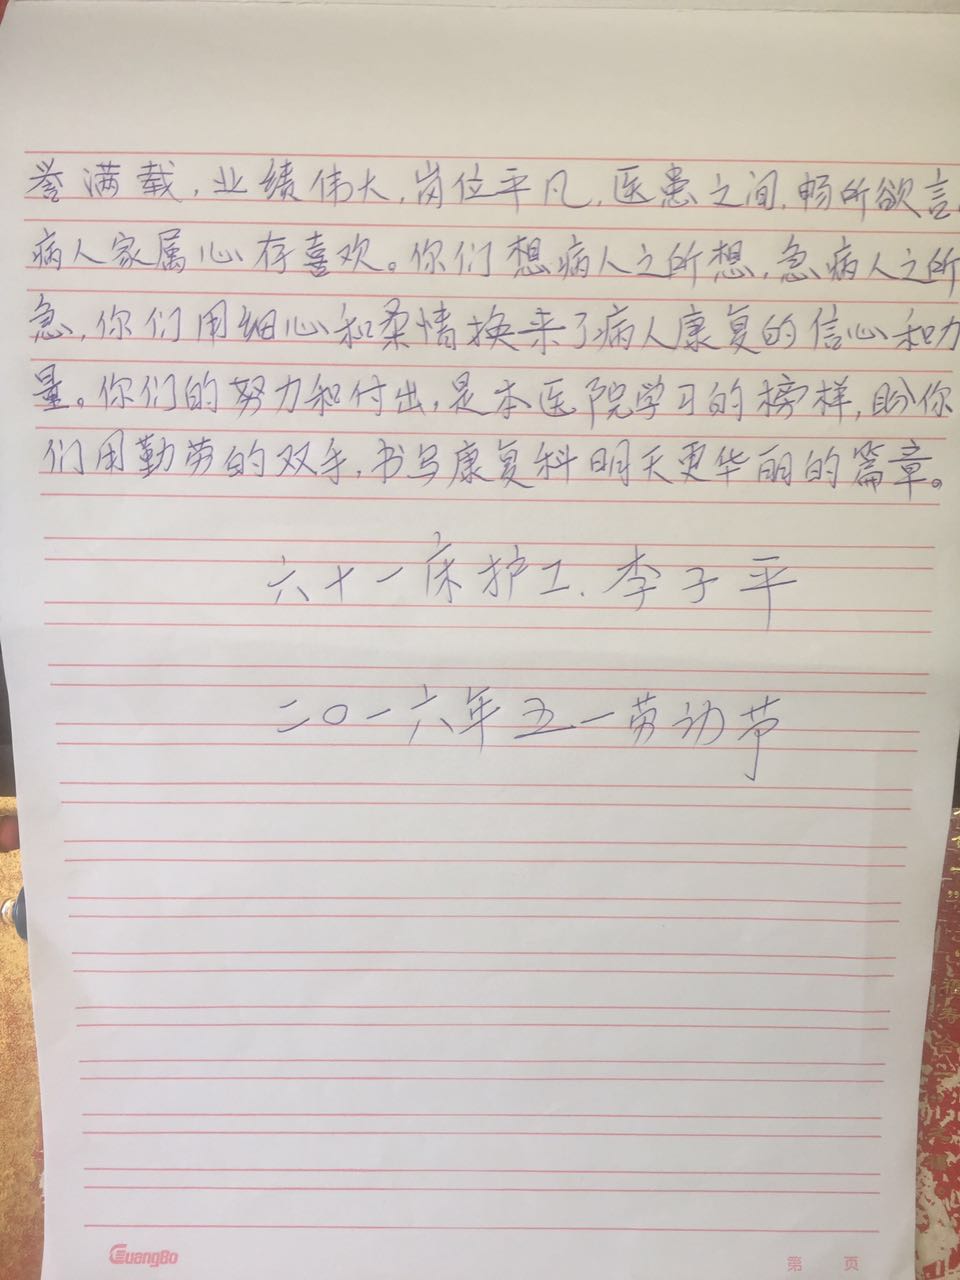 誉满载，业绩伟大，岗位平凡，医患之间，畅所欲言，
病人家属心存喜欢。你们想病人之所想，急病人之所
急，你们用细心和柔情换来了病人康复的信心和力
量。你们的努力和付出，是本医院学习的榜样，盼你
们用勤劳的双手，书写康复科明天更华丽的篇章。
六十一床护工．李子平
二〇一六年五一劳动节
GuangBo
第 页